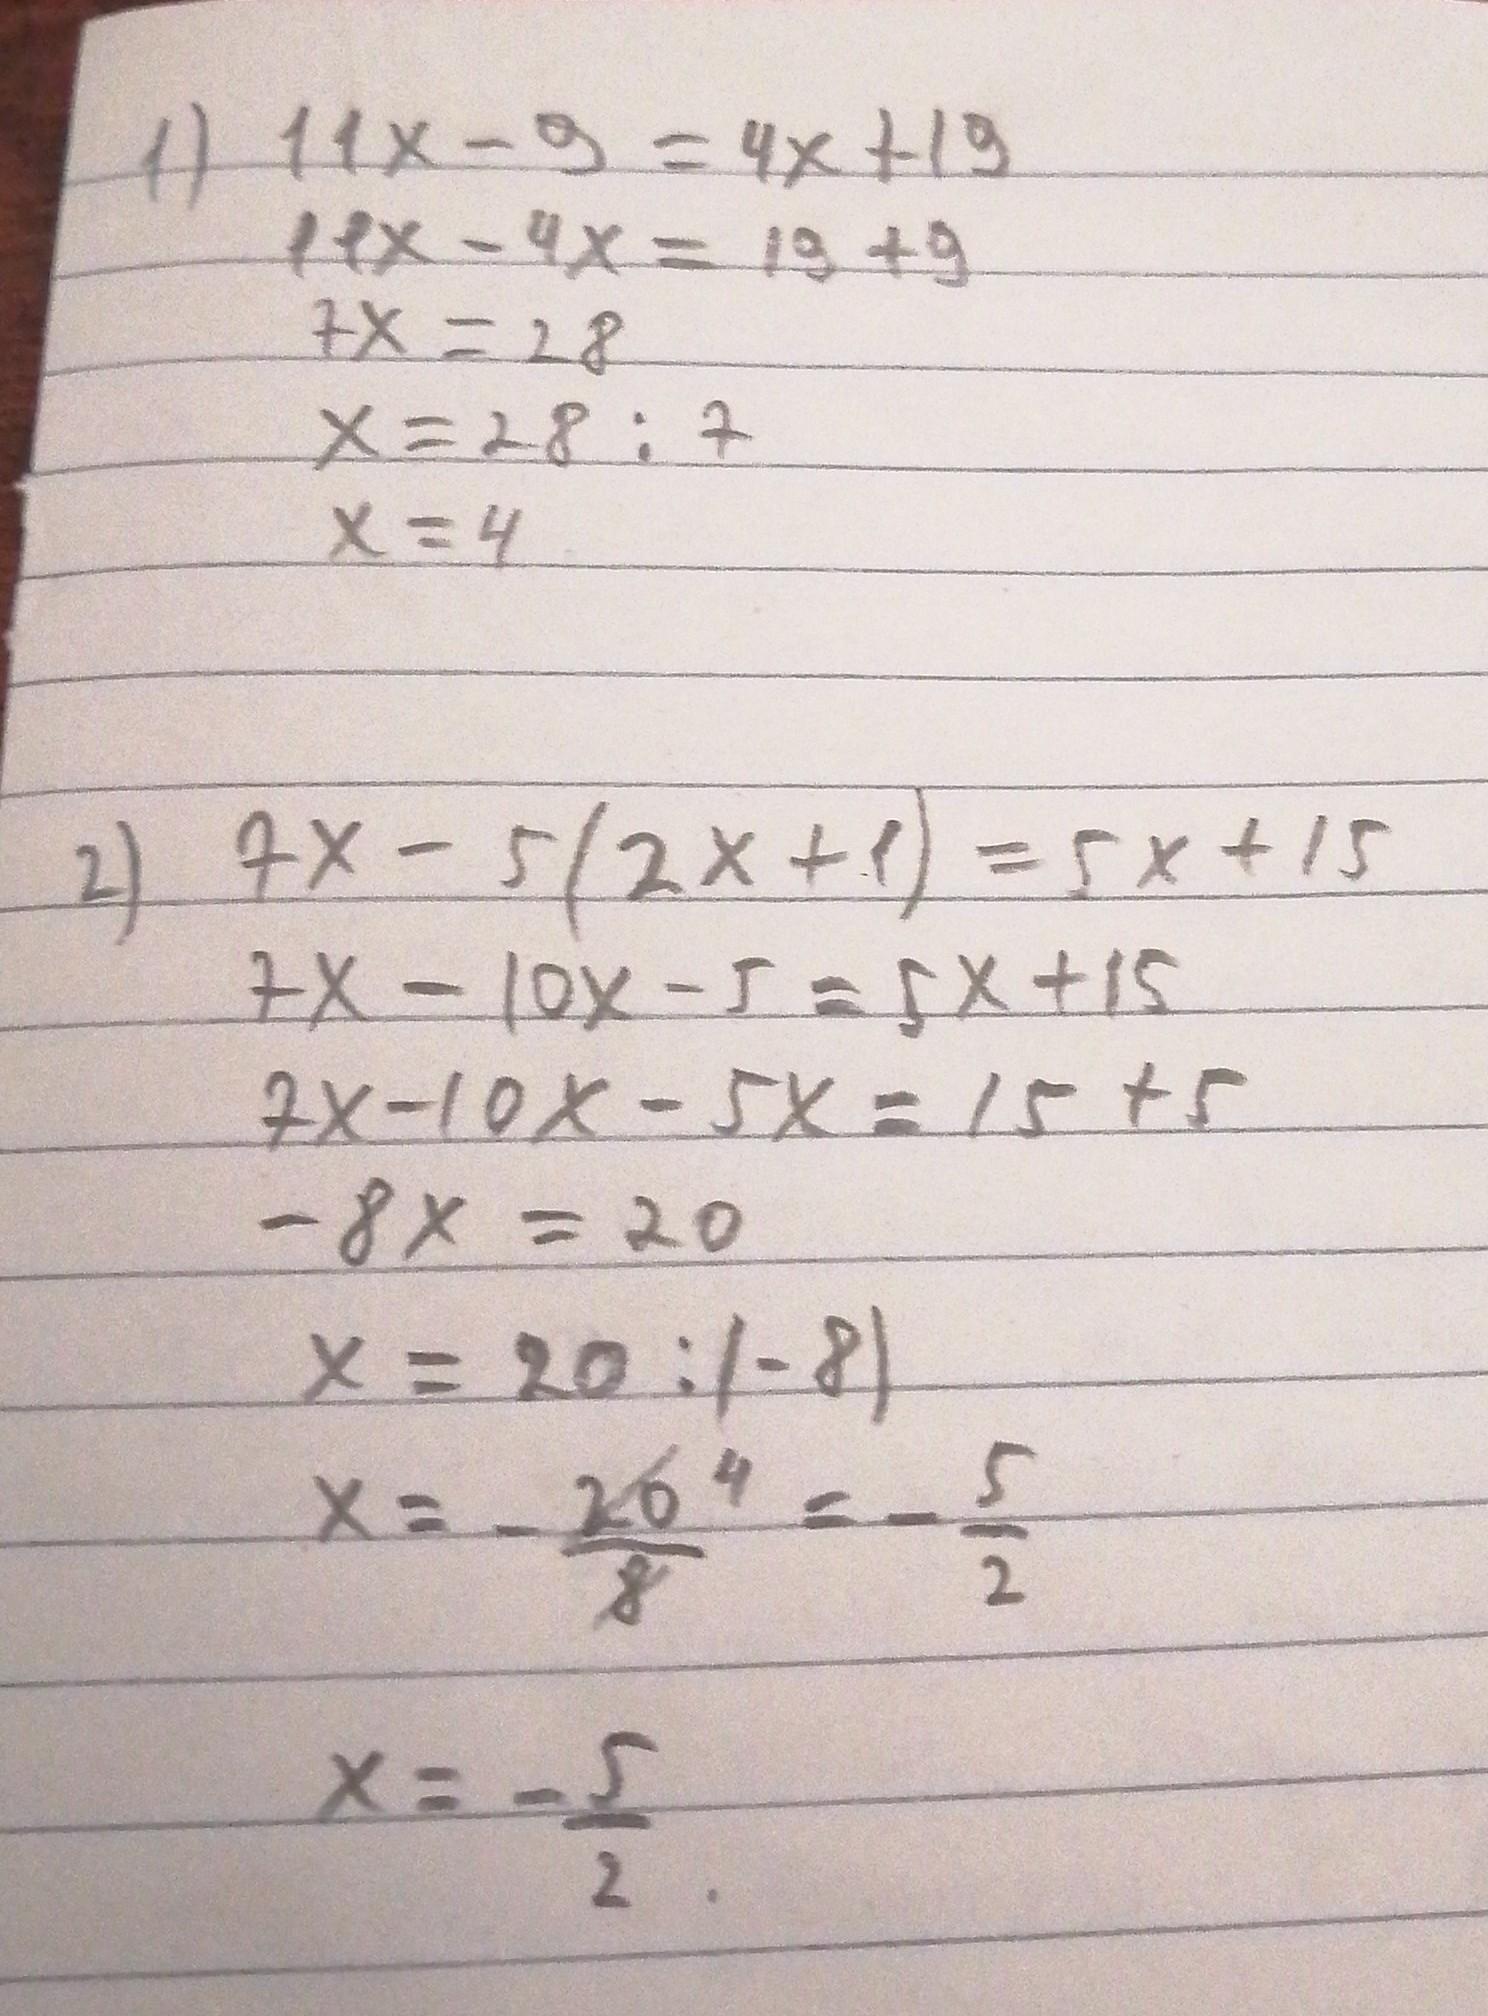 1) 11x - 9 = 4x + 19
11x - 4x = 19 + 9
7x = 28
x = 28 : 7
x = 4
2) 7x - 5(2x + 1) = 5x + 15
7x - 10x - 5 = 5x + 15
7x - 10x - 5x = 15 + 5
-8x = 20
x = 20 : (-8)
x = - 20/8 4 = - 5/2
x = - 5/2 .